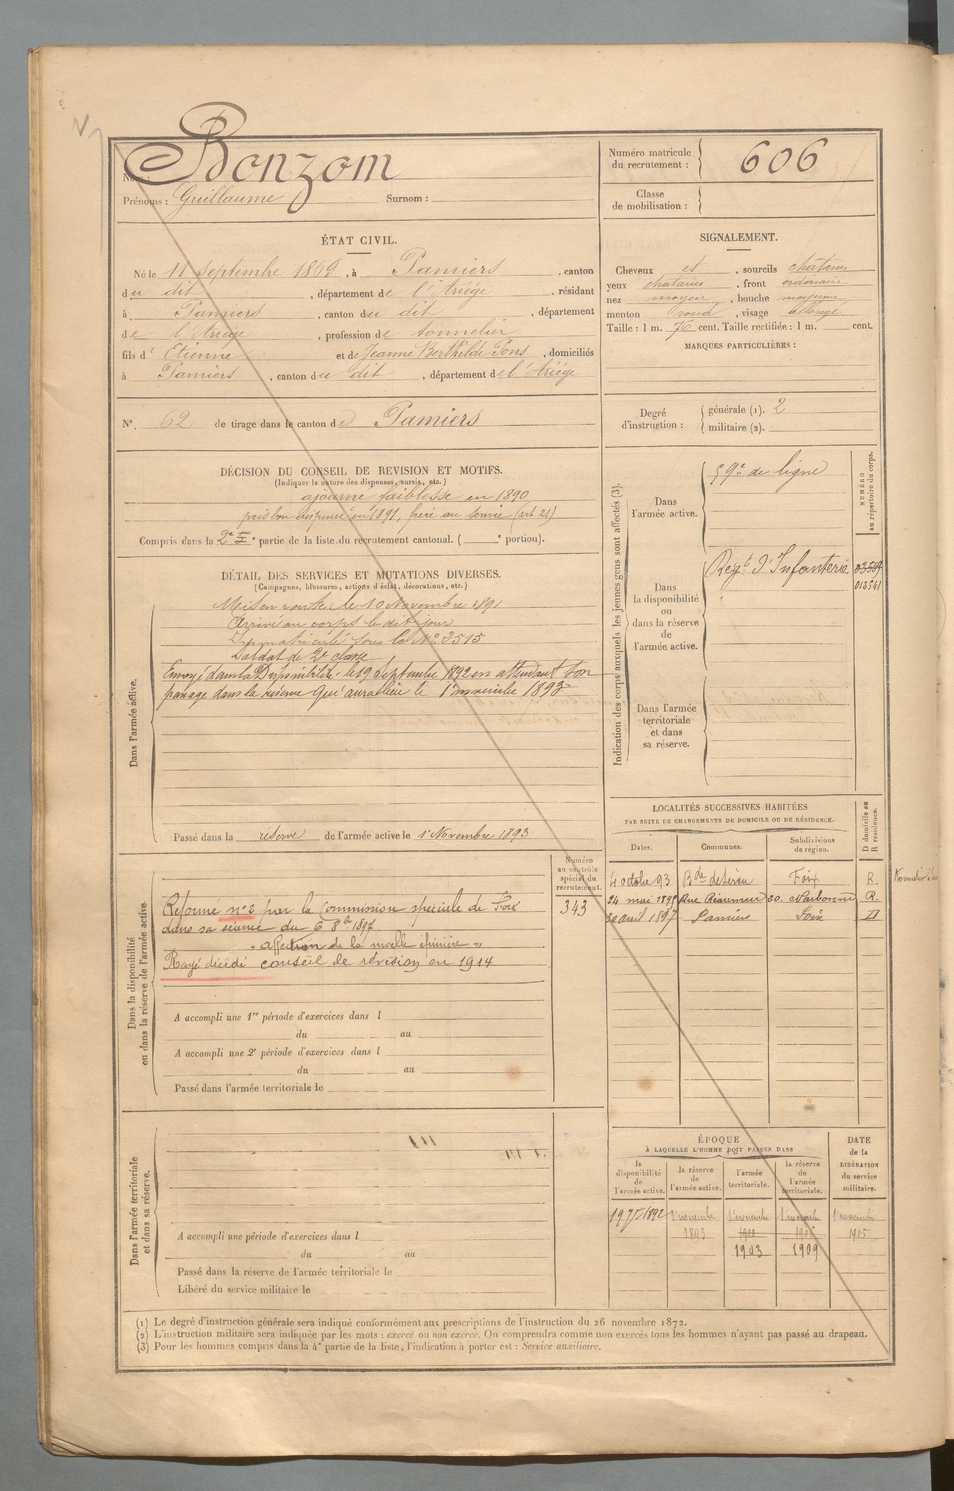 Nom : Bonzom
Prénoms : Guillaume Surnom :
Numéro matricule du recrutement : 606
Classe de mobilisation :
ÉTAT CIVIL.
Né le 11 septembre 1869, à Pamiers, canton
du dit, département de l'Ariége, résidant
à Pamiers, canton du dit, département
de l'Ariége, profession de tonnelier
fils d' Etienne et de Jeanne Berthilde Pons, domiciliés
à Pamiers, canton du dit, département de l'Ariége
SIGNALEMENT.
Cheveux et, sourcils châtains
yeux châtains, front ordinaire
nez moyen, bouche moyenne
menton rond, visage allongé
Taille : 1 m. 76 cent. Taille rectifiée : 1 m. cent.
MARQUES PARTICULIÈRES :
N°. 62 de tirage dans le canton de Pamiers
Degré d'instruction : générale (1). 2
militaire (2).
DÉCISION DU CONSEIL DE REVISION ET MOTIFS.
(Indiquer la nature des dispenses, sursis, etc.)
ajourné faiblesse en 1890
pris bon dispensé en 1891, frère au service (art 21)
Compris dans la 2e partie de la liste du recrutement cantonal. ( portion).
DÉTAIL DES SERVICES ET MUTATIONS DIVERSES.
(Campagnes, blessures, actions d'éclat, décorations, etc.)
Dans l'armée active.
Mis en route le 10 Novembre 1891
Arrivé au corps le dit jour
Immatriculé sous le N° 2515
Soldat de 2e classe
Envoyé dans la Disponibilité le 19 Septembre 1892 en attendant son
passage dans la réserve qui aura lieu le 1er novembre 1893
Passé dans la réserve de l'armée active le 1er Novembre 1893
Indication des corps auxquels les jeunes gens sont affectés (3).
NUMÉRO au répertoire du corps.
Dans l'armée active.
59e de ligne
Dans la disponibilité ou dans la réserve de l'armée active.
Regt d'Infanterie
012541
Dans l'armée territoriale et dans sa réserve.
LOCALITÉS SUCCESSIVES HABITÉES
PAR SUITE DE CHANGEMENTS DE DOMICILE OU DE RÉSIDENCE.
Dates. Communes. Subdivisions de région. D domicile ou R résidence.
4 octobre 93 Foix R.
24 mai 189 Rue Réaumur 20. Narbonne R.
30 avril 1897 Pamiers Foix D
Dans la disponibilité ou dans la réserve de l'armée active.
Numéro au contrôle spécial du recrutement.
343
Réformé n° 2 par la Commission spéciale de Foix
dans sa séance du 6 8bre 1896
"affection de la moelle épinière"
Rayé décédé conseil de révision en 1914
A accompli une 1re période d'exercices dans l
du au
A accompli une 2e période d'exercices dans l
du au
Passé dans l'armée territoriale le
Dans l'armée territoriale et dans sa réserve.
A accompli une période d'exercices dans l
du au
Passé dans la réserve de l'armée territoriale le
Libéré du service militaire le
ÉPOQUE
À LAQUELLE L'HOMME DOIT PASSER DANS
la disponibilité de l'armée active. la réserve de l'armée active. l'armée territoriale. la réserve de l'armée territoriale.
DATE de la LIBÉRATION du service militaire.
19 7bre 1892 1er novembre 1er novembre 1er novembre 1er novembre
1893 1915
1903 1909
(1) Le degré d'instruction générale sera indiqué conformément aux prescriptions de l'instruction du 26 novembre 1872.
(2) L'instruction militaire sera indiquée par les mots : exercé ou non exercé. On comprendra comme non exercés tous les hommes n'ayant pas passé au drapeau.
(3) Pour les hommes compris dans la 4e partie de la liste, l'indication à porter est : Service auxiliaire.